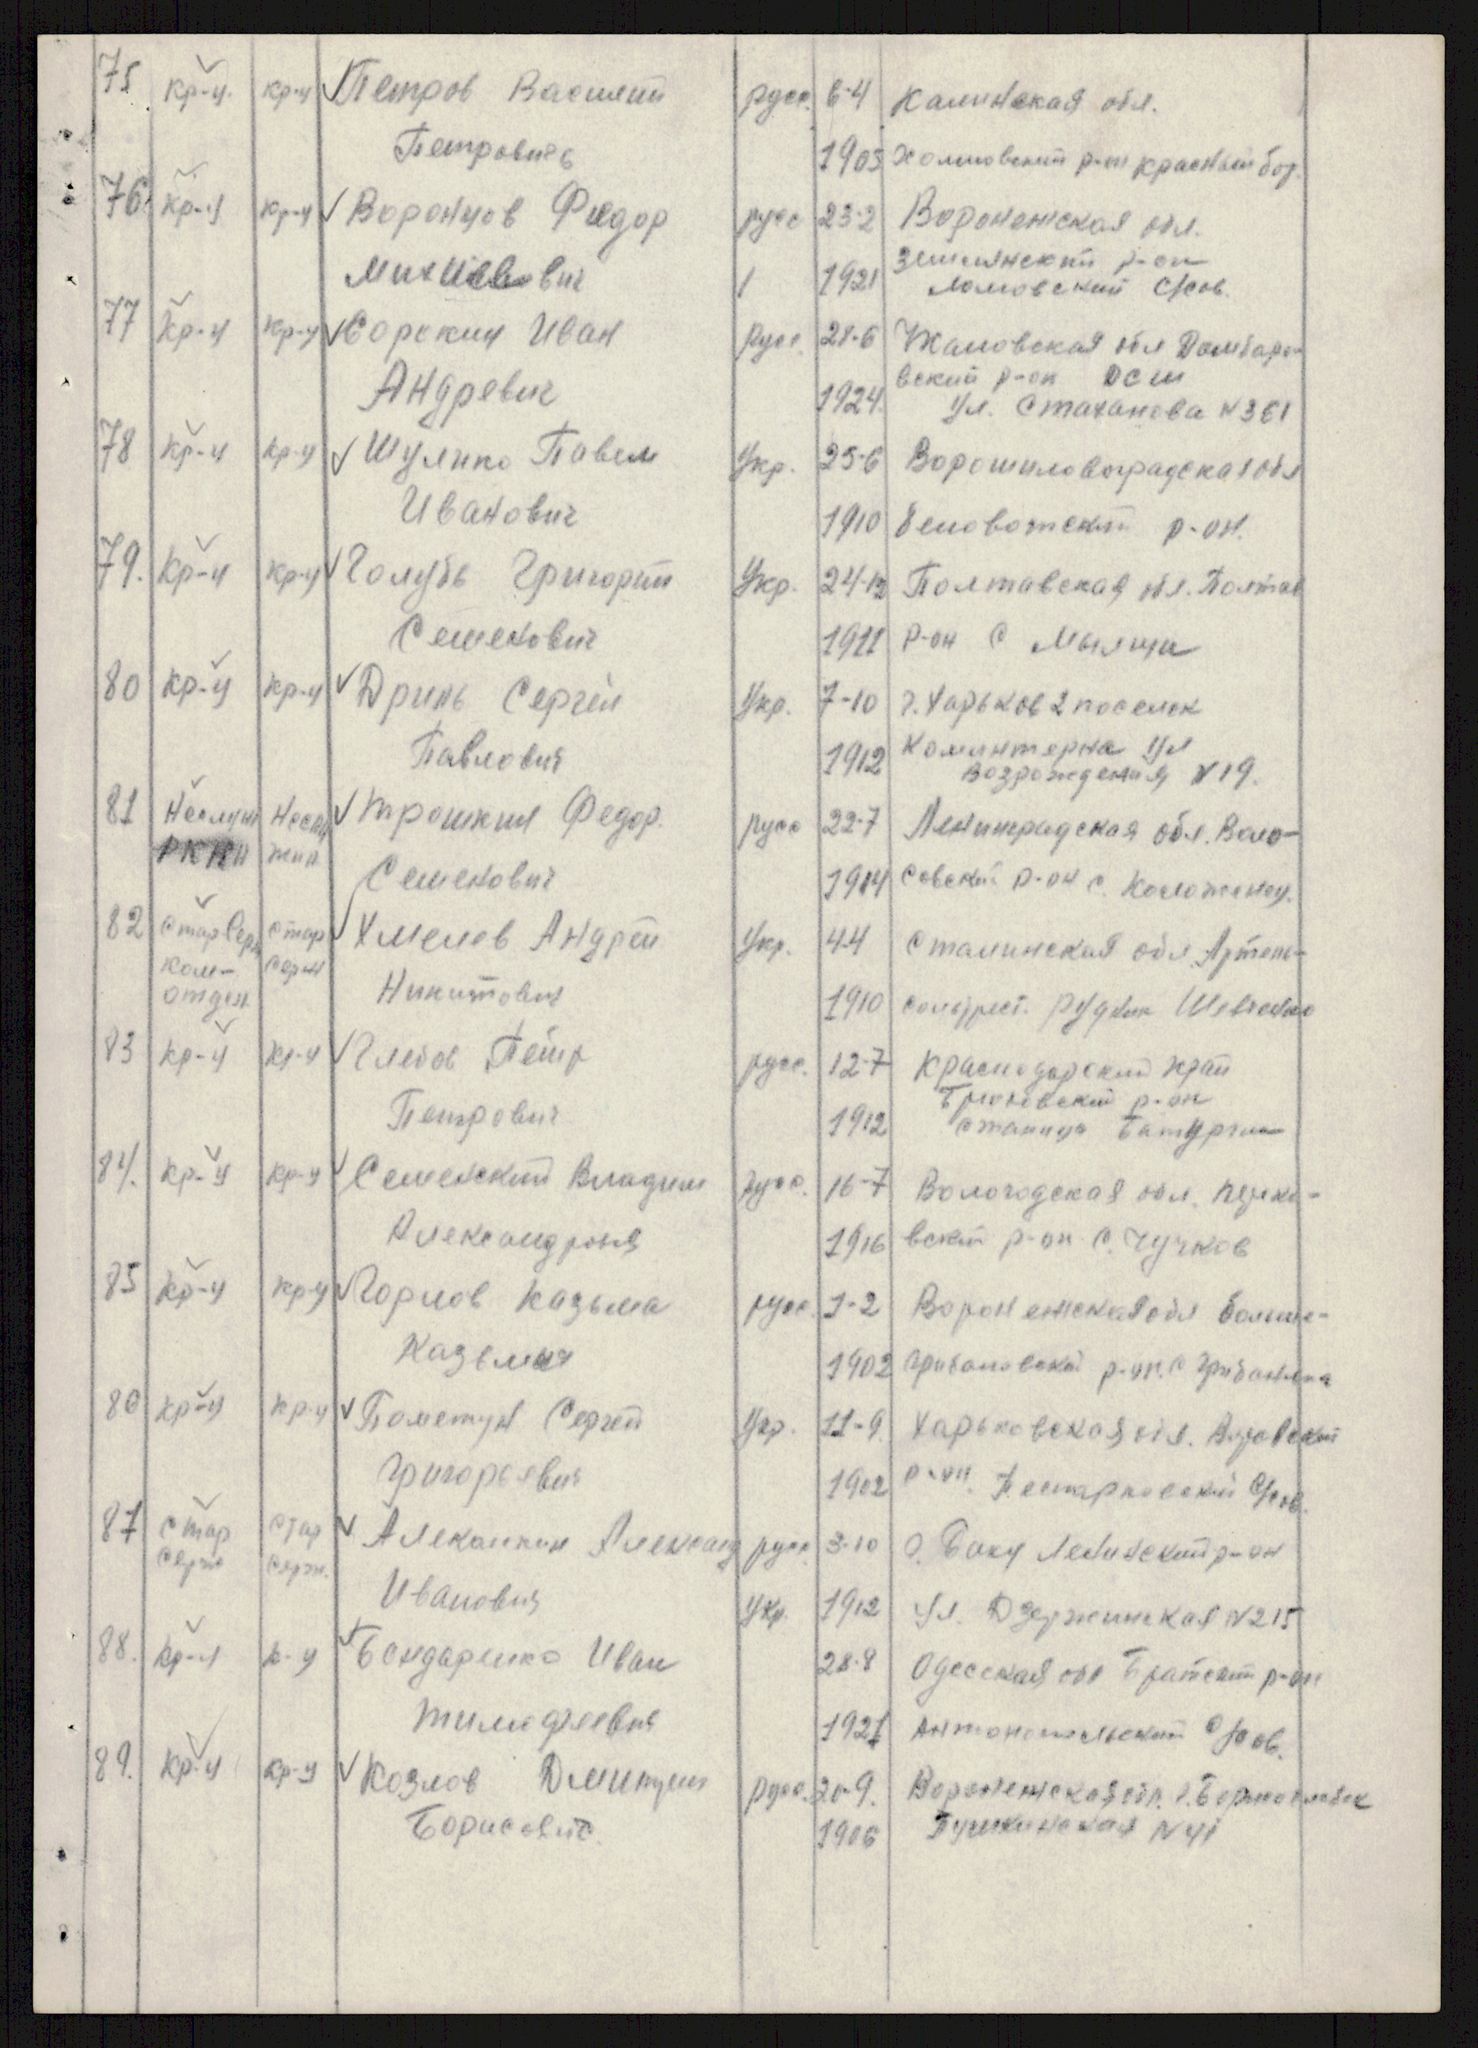 75 кр-ц. кр-ц Петров Василий русс. 6-4 Калинская обл.
Петровичь 1905 Холмовский р-он красный бор.
76. кр-ц кр-ц Воронцов Федор русс 23-2 Воронежская обл.
Землянский р-он
вич 1921 Ломовский с/сов.
77 кр-ц кр-ц Сорокин Иван русс. 28-6 Чкаловская обл Домбаро-
вский р-он ДСШ
Андревич 1924. ул. Стаханова №361
78 кр-ц кр-ц Шулико Павел Укр. 25-6 Ворошиловоградская обл
Иванович 1910 беловотский р-он.
79. кр-ц кр-ц Голубь Григорий Укр. 24-12 Полтавская обл. Полтав
Семенович 1911 р-он с Мылци
80 кр-ц кр-ц Дринь Сергей Укр. 7-10 г. Харьков 2 поселок
Коминтерна ул
Павлович 1912 Возрождения №19.
81 Трошкин Федор. русс 22-7 Ленинградская обл. Воло-
Семенович 1914 совский р-он с.
82 Стар Серж стар Хмелев Андрей Укр. 4-4 Сталинская обл. Артемь-
ком- серж
отдел Никитович 1910 рудник Шевченко
83 кр-ц кр-ц Глебов Пётр русс. 12-7 Краснодарский край
р-он
Петрович 1912 станица Батурин
84. кр-ц кр-ц Семенский Владим русс. 16-7 Вологодская обл.
1916 вский р-он с. Чучков
85 кр-ц кр-ц Горлов Казьма русс. 1-2 Воронежская обл больше-
Казьмич 1902 грибановский р-он. с
86 кр-ц кр-ц Пометун Сергей Укр. 11-9. Харьковская обл.
Григорьевич 1902 р-он. с/сов.
87 стар стар русс 3-10 г. Баку Ленинский р-он
серж серж.
Иванович Укр. 1912 ул. Дзержинская №215
88. кр-ц к-ц Бондаренко Иван 28-8 Одесская обл Братский р-он
Тимофеевич 1921 Антонопольский с/сов.
89. кр-ц кр-ц Козлов Дмитрий русс. 20-9. Воронежская обл. г.
Борисович. 1906 Пушкинская №41